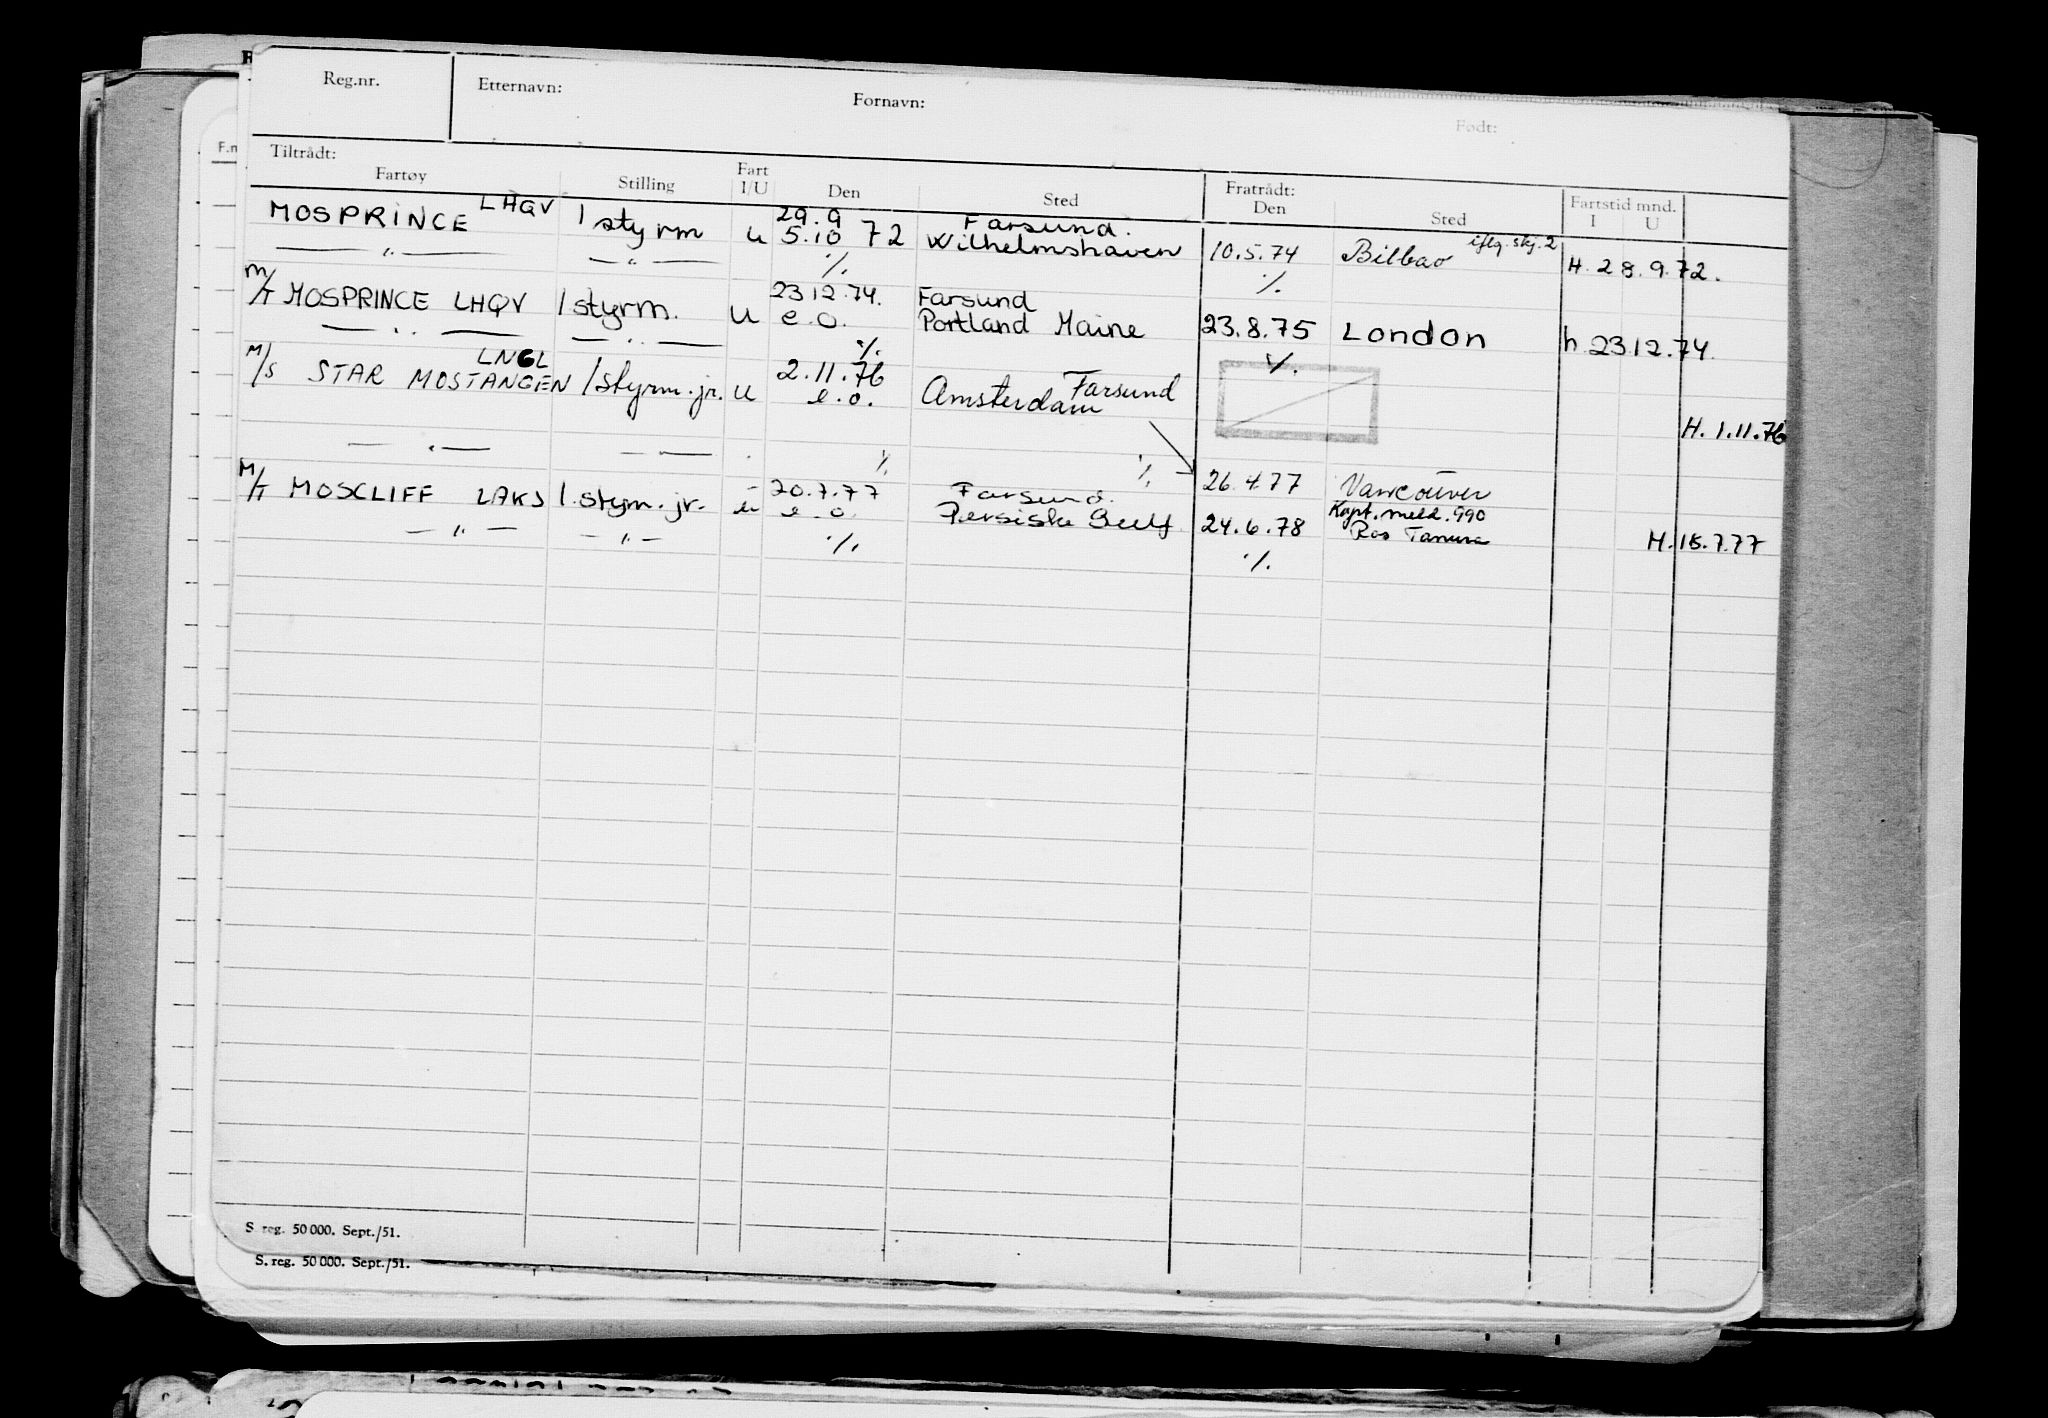 Reg.nr. Etternavn: Fornavn: Født:
Tiltrådt: Fratrådt:
Fartøy Stilling Fart I/U Den Sted Den Sted Fartstid mnd. I U
MOSPRINCE LHQV 1 styrm u 29.9 Farsund.
5.10 72 Wilhelmshaven 10.5.74 Bilbao iflg. skj. 2 H. 28.9.72.
— „ — — „ — ./. ./.
M/T MOSPRINCE LHQV 1 styrm. u 23 12.74. Farsund
e.o. Portland Maine 23.8.75 London h 23.12.74.
— „ — — „ — ./. ./.
M/S STAR MOSTANGEN LNGL 1 styrm. jr. u 2.11.76 Farsund
e.o. Amsterdam H. 1.11.76
— „ — — „ — ./. ./. 26.4.77 Vancouver
M/T MOSCLIFF LAKS 1. styrm. jr. u 20.7.77 Farsund. Kapt. meld. 990
e.o. Persiske Gulf 24.6.78 Ras Tanura H. 18.7.77
— „ — — „ — ./. ./.
S. reg. 50 000. Sept./51.
S. reg. 50 000. Sept./51.